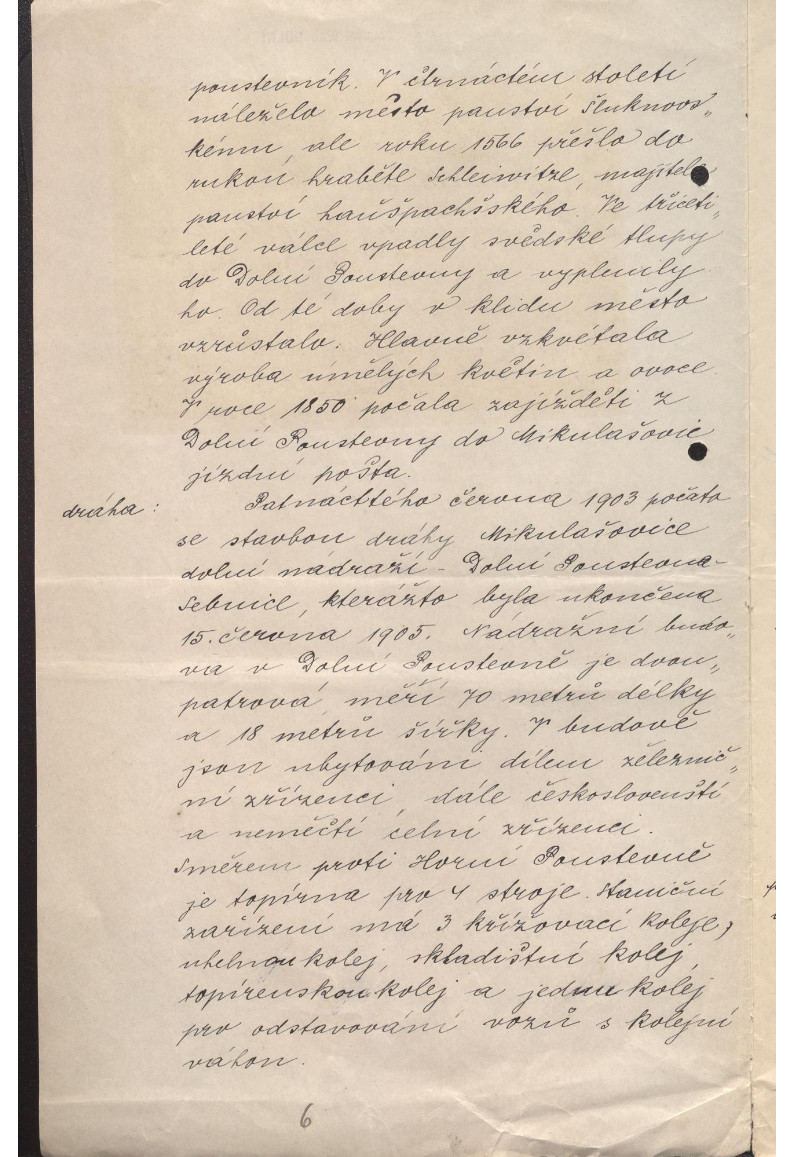 poustevník. V čtrnáctém století
náleželo město panství Šluknovs„
kému, ale roku 1566 přešlo do
rukou hraběte Schleiwitze, majitele
panství haušpachšského. Ve třiceti„
leté válce vpadly svědské tlupy
do Dolní Poustevny a vyplenily
ho. Od té doby v klidu město
vzrůstalo. Hlavně vzkvétala
výroba umělých květin a ovoce.
V roce 1850 počala zajížděti z
Dolní Poustevny do Mikulašovic
jízdní pošta.
dráha: Patnácttého června 1903 počato
se stavbou dráhy Mikulašovice
dolní nádraží - Dolní Poustevna-
Sebnice, kterážto byla ukončena
15. června 1905. Nádražní budo„
va v Dolní Poustevně je dvou„
patrová, měří 70 metrů délky
a 18 metrů šířky. V budově
jsou ubytováni dílem železnič„
ní zřízenci, dále českoslovenští
a neměčtí celní zřízenci.
Směrem proti Horní Poustevně
je topírna pro 4 stroje. Staniční
zařízení má 3 křížovací koleje,
uhelnou kolej, skladištní kolej,
topírenskou kolej a jednu kolej
pro odstavování vozů s kolejní
váhou.
6